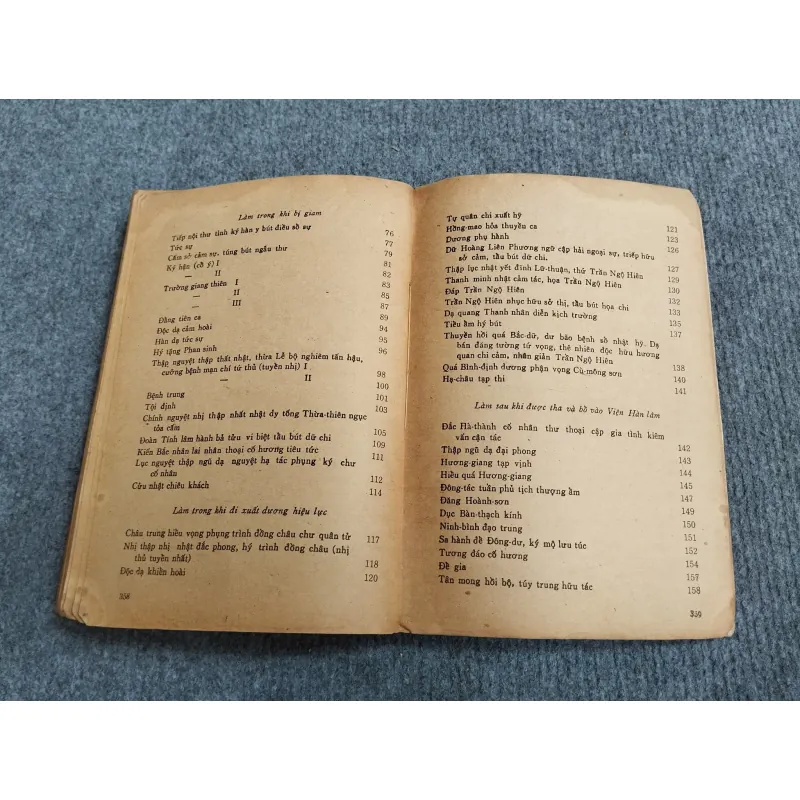 Làm trong khi bị giam
Tiếp nội thư tinh ký hàn y bút điều số sự 76
Tức sự 77
Cấm sở cảm sự, túng bút ngẫu thư 79
Ký hận (cố ý) I 81
— II 82
Trường giang thiên I 83
— II 85
— III 87
Đằng tiên ca 89
Độc dạ cảm hoài 94
Hàn dạ tức sự 95
Hý tặng Phan sinh 96
Thập nguyệt thập thất nhật, thừa Lễ bộ nghiêm tấn hậu,
cưỡng bệnh mạn chí tứ thủ (tuyển nhị) I 98
— II 100
Bệnh trung 101
Tội định 103
Chính nguyệt nhị thập nhất nhật dy tống Thừa-thiên ngục
tỏa cấm 105
Đoàn Tính lâm hành bả tửu vi biệt tẩu bút dữ chi 109
Kiến Bắc nhân lai nhân thoại cố hương tiêu tức 111
Lục nguyệt thập ngũ dạ nguyệt hạ tác phụng ký chư
cố nhân 112
Cửu nhật chiêu khách 114
Làm trong khi đi xuất dương hiệu lực
Châu trung hiểu vọng phụng trình đồng châu chư quân tử 117
Nhị thập nhị nhật đắc phong, hý trình đồng châu (nhị
thủ tuyển nhất) 118
Độc dạ khiển hoài 120
358
Tự quân chi xuất hỹ 121
Hồng-mao hỏa thuyền ca 123
Dương phụ hành 126
Dữ Hoàng Liên Phương ngữ cập hải ngoại sự, triếp hữu
sở cảm, tẩu bút dữ chi. 127
Thập lục nhật yết đính Lữ-thuận, thứ Trần Ngộ Hiên 129
Thanh minh nhật cảm tác, họa Trần Ngộ Hiên 130
Đáp Trần Ngộ Hiên 132
Trần Ngộ Hiên nhục hữu sở thị, tẩu bút họa chi 133
Dạ quang Thanh nhân diễn kịch trường 135
Tiểu ẩm hý bút 137
Thuyền hồi quá Bắc-dữ, dư bão bệnh sổ nhật hỹ. Dạ
bán đăng tường tứ vọng, thê nhiên độc hữu hương
quan chi cảm, nhân giản Trần Ngộ Hiên 138
Quá Bình-định dương phận vọng Cù-mông sơn 140
Hạ-châu tạp thi 141
Làm sau khi được tha và bổ vào Viện Hàn lâm
Đắc Hà-thành cố nhân thư thoại cập gia tình kiêm
vấn cận tác 142
Thập ngũ dạ đại phong 143
Hương-giang tạp vịnh 144
Hiểu quá Hương-giang 145
Đông-tác tuần phủ tịch thượng ẩm 147
Đăng Hoành-sơn 149
Dục Bàn-thạch kính 150
Ninh-bình đạo trung 151
Sa hành đề Đông-dư, ký mộ lưu túc 152
Tương đáo cố hương 154
Đề gia 157
Tân mong hồi bộ, túy trung hữu tác 158
359